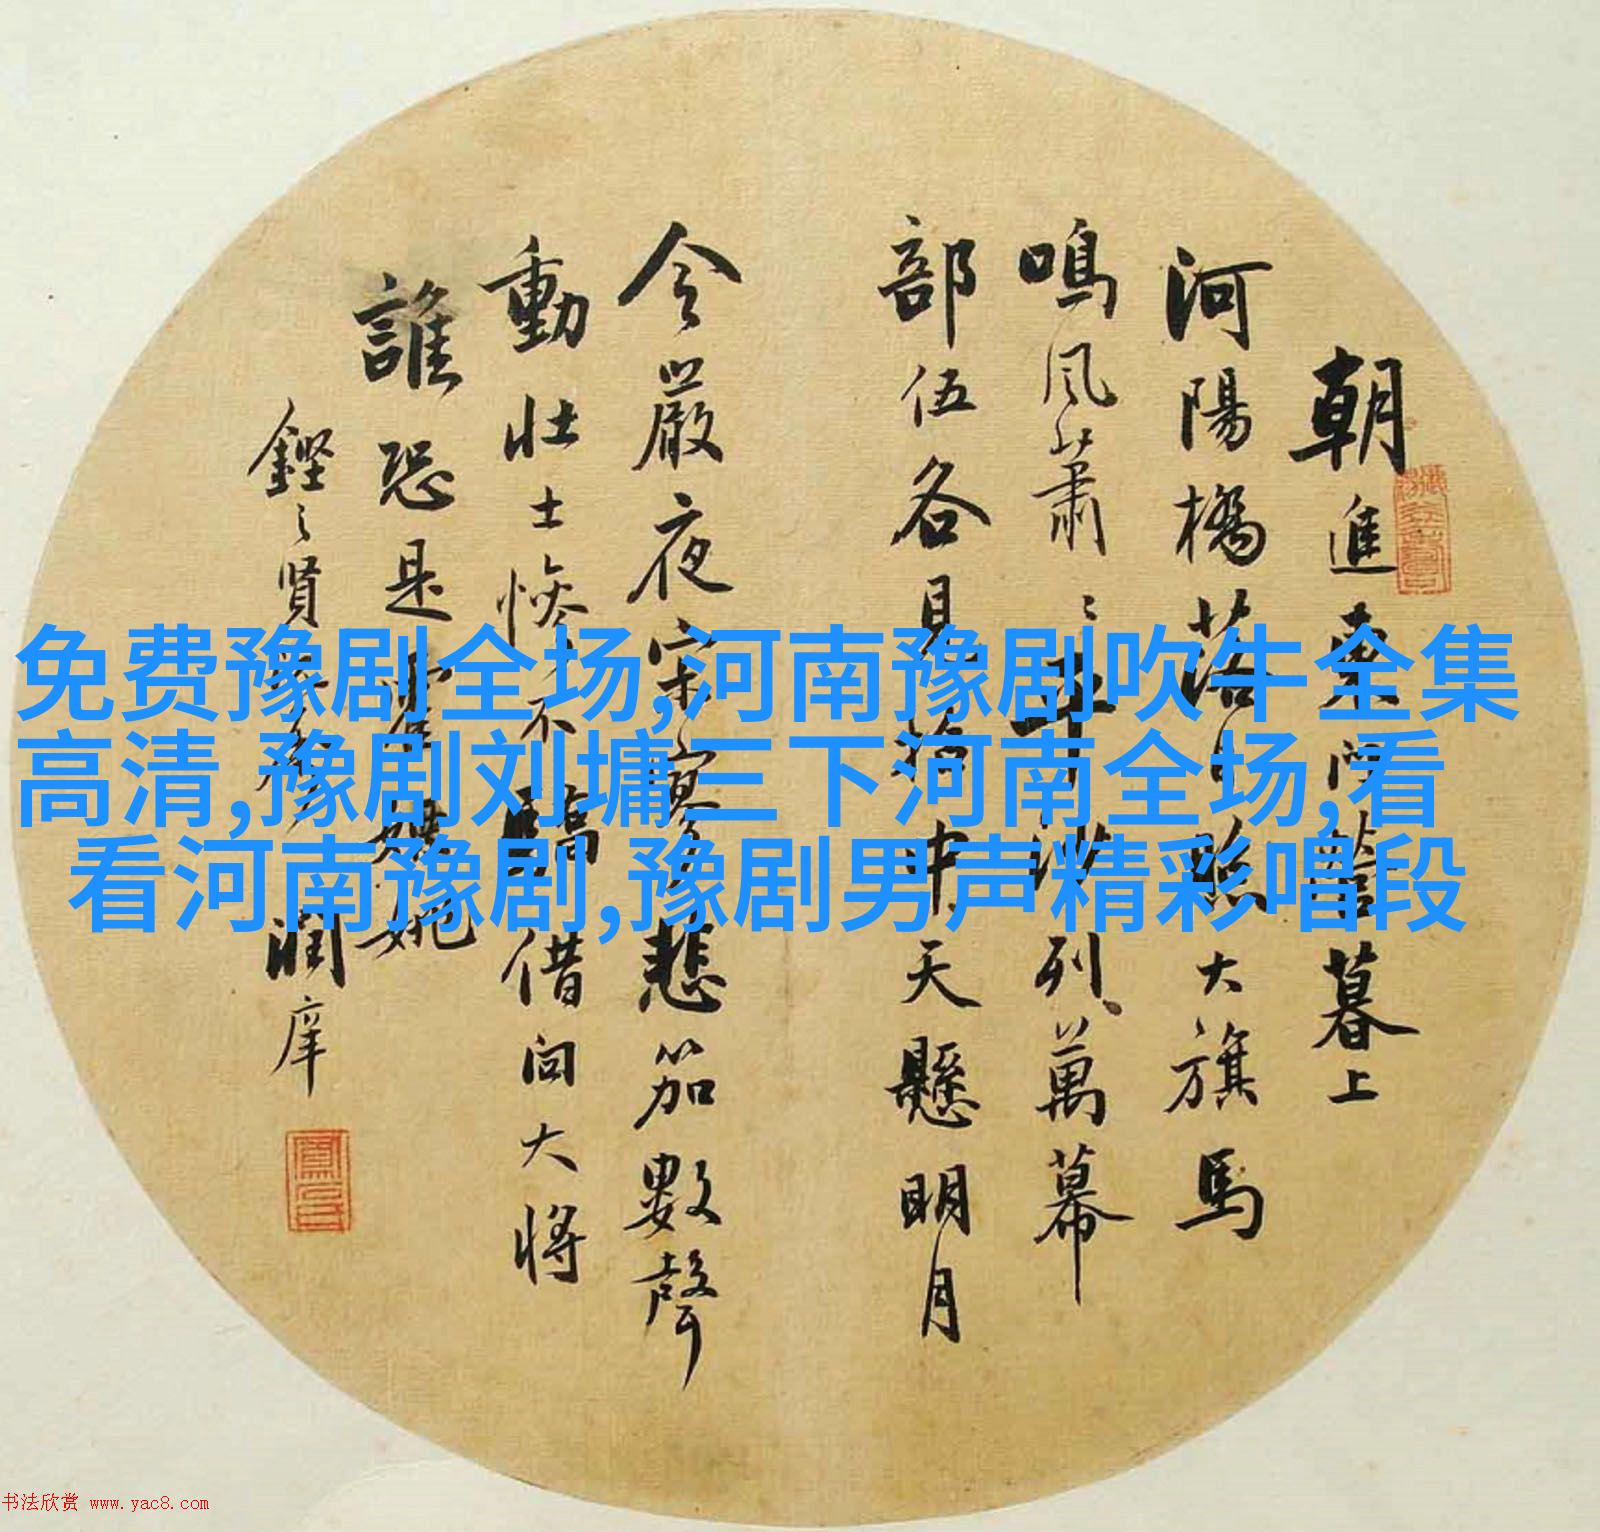 朝進東門營暮上
河陽橋落日照大旗馬
鳴風蕭〻平沙列萬幕
部伍各見招中天懸明月
令嚴夜寂寥悲笳數聲
動壯士慘不驕借問大將
誰恐是霍嫖姚
鏗之賢 潤庠
免费豫剧全场,河南豫剧吹牛全集
高清,豫剧刘墉三下河南全场,看
看河南豫剧,豫剧男声精彩唱段
书法欣赏 www.yac8.com